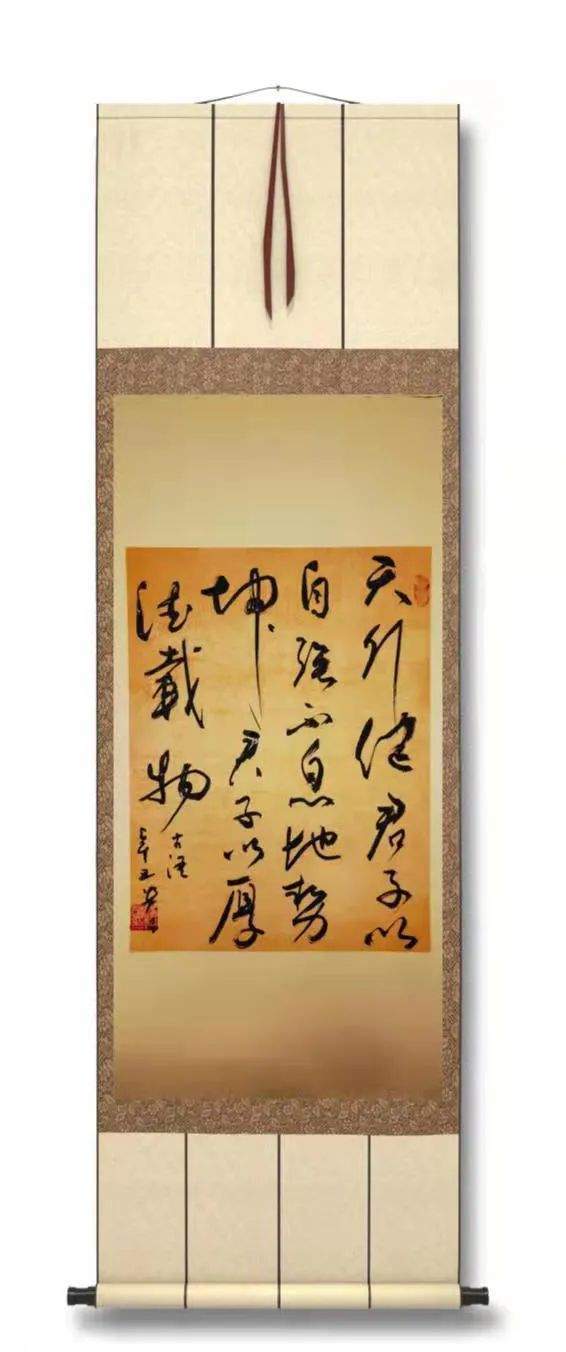 天行健君子以
自强不息地势
坤君子以厚
德载物
古语
辛丑